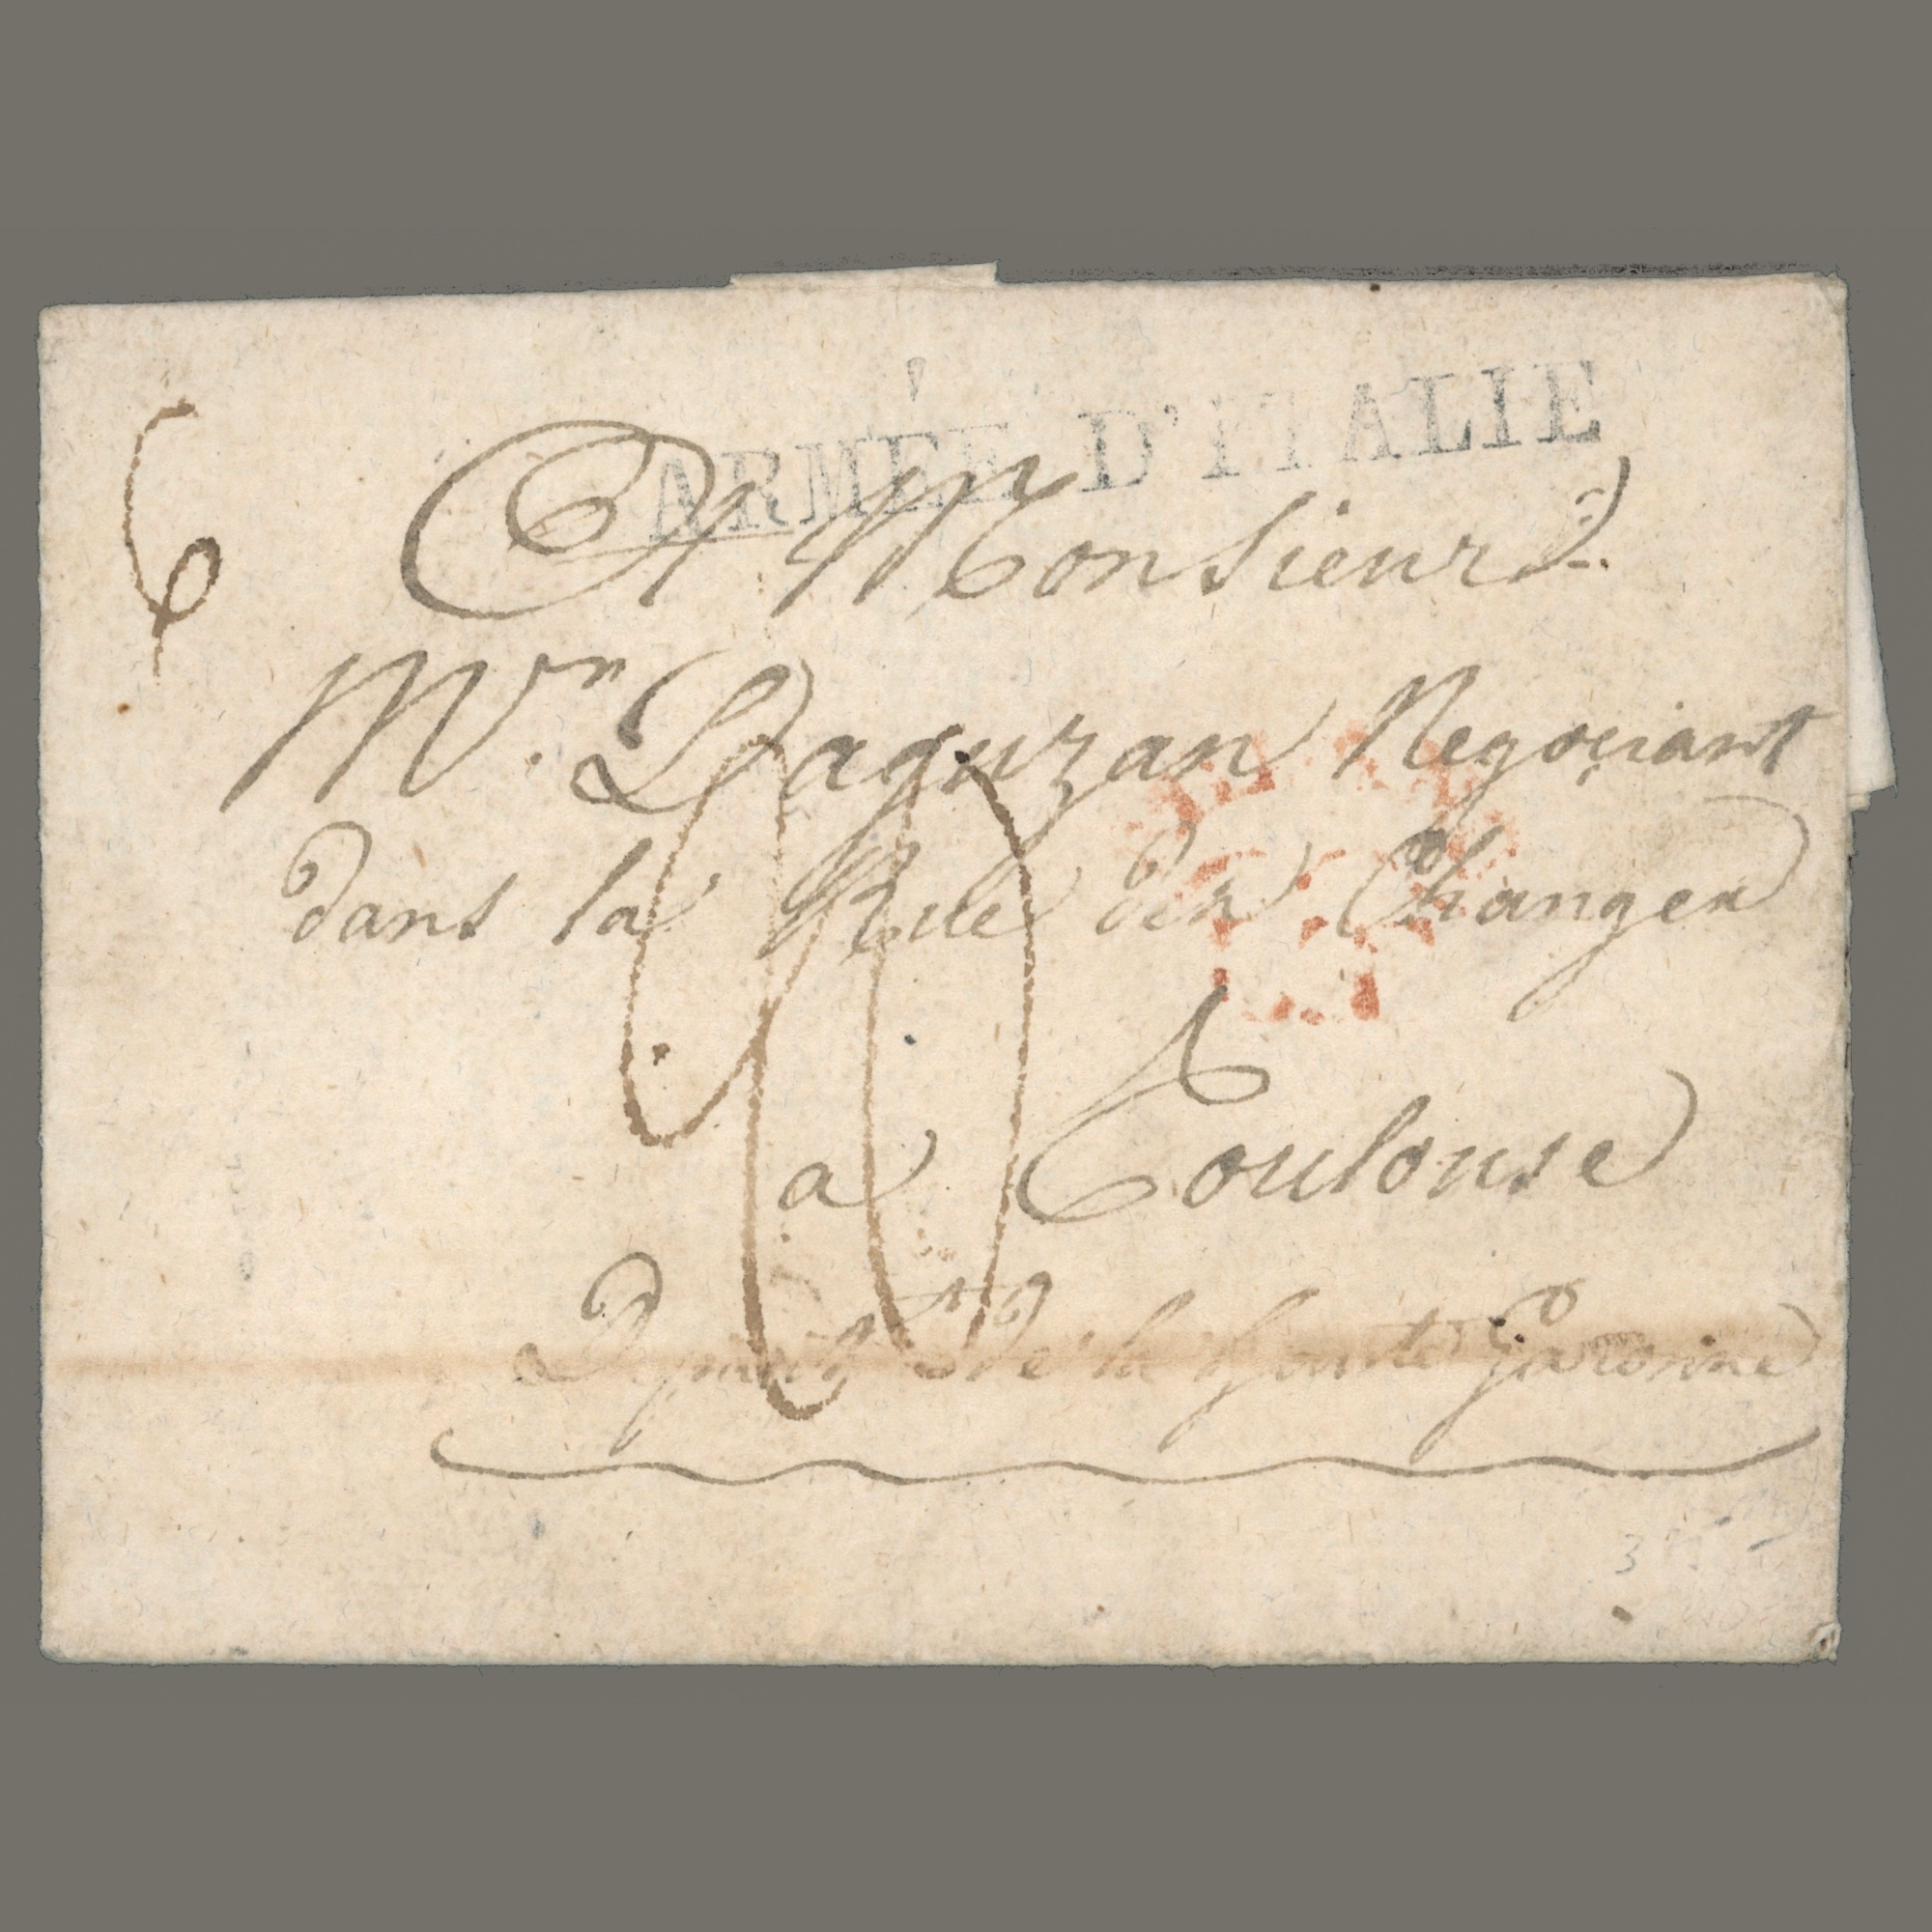 6
ARMÉE D'ITALIE
A Monsieur
Mr. Daguzan Negociant
dans la Rue des Changes
a Toulouse
de la haute Garonne
3